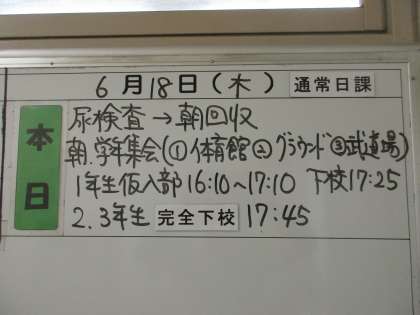 6月18日(木) 通常日課
本日
尿検査→朝回収
朝.学年集会(①体育館②グラウンド③武道場)
1年生仮入部16:10~17:10 下校17:25
2.3年生 完全下校 17:45